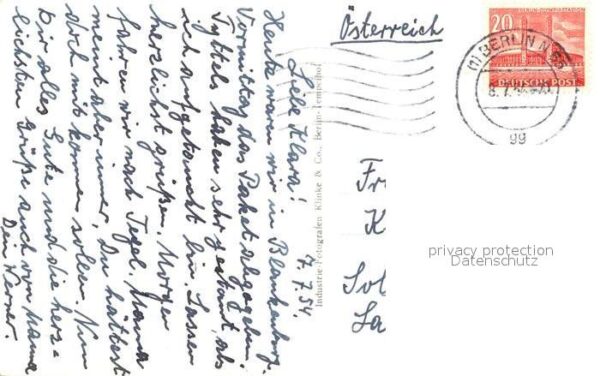 7.7.54.
Liebe Klara!
Heute waren wir in Blankenburg.
Vormittag das Paket abgegeben.
haben sehr gestaunt, als
ich aufgetaucht bin. Lassen
herzlichst grüßen. Morgen
fahren wir nach Tegel. Mama
meint aber immer, Du hättest
doch mit kommen sollen. Nun
Dir alles Gute und die herz-
lichsten Grüße auch von Mama
Dein Werner.
Industrie-Fotografen Klinke & Co., Berlin-Tempelhof
Österreich
20
DEUTSCHE POST
(1) BERLIN N
99
Fr
K
La
privacy protection
Datenschutz